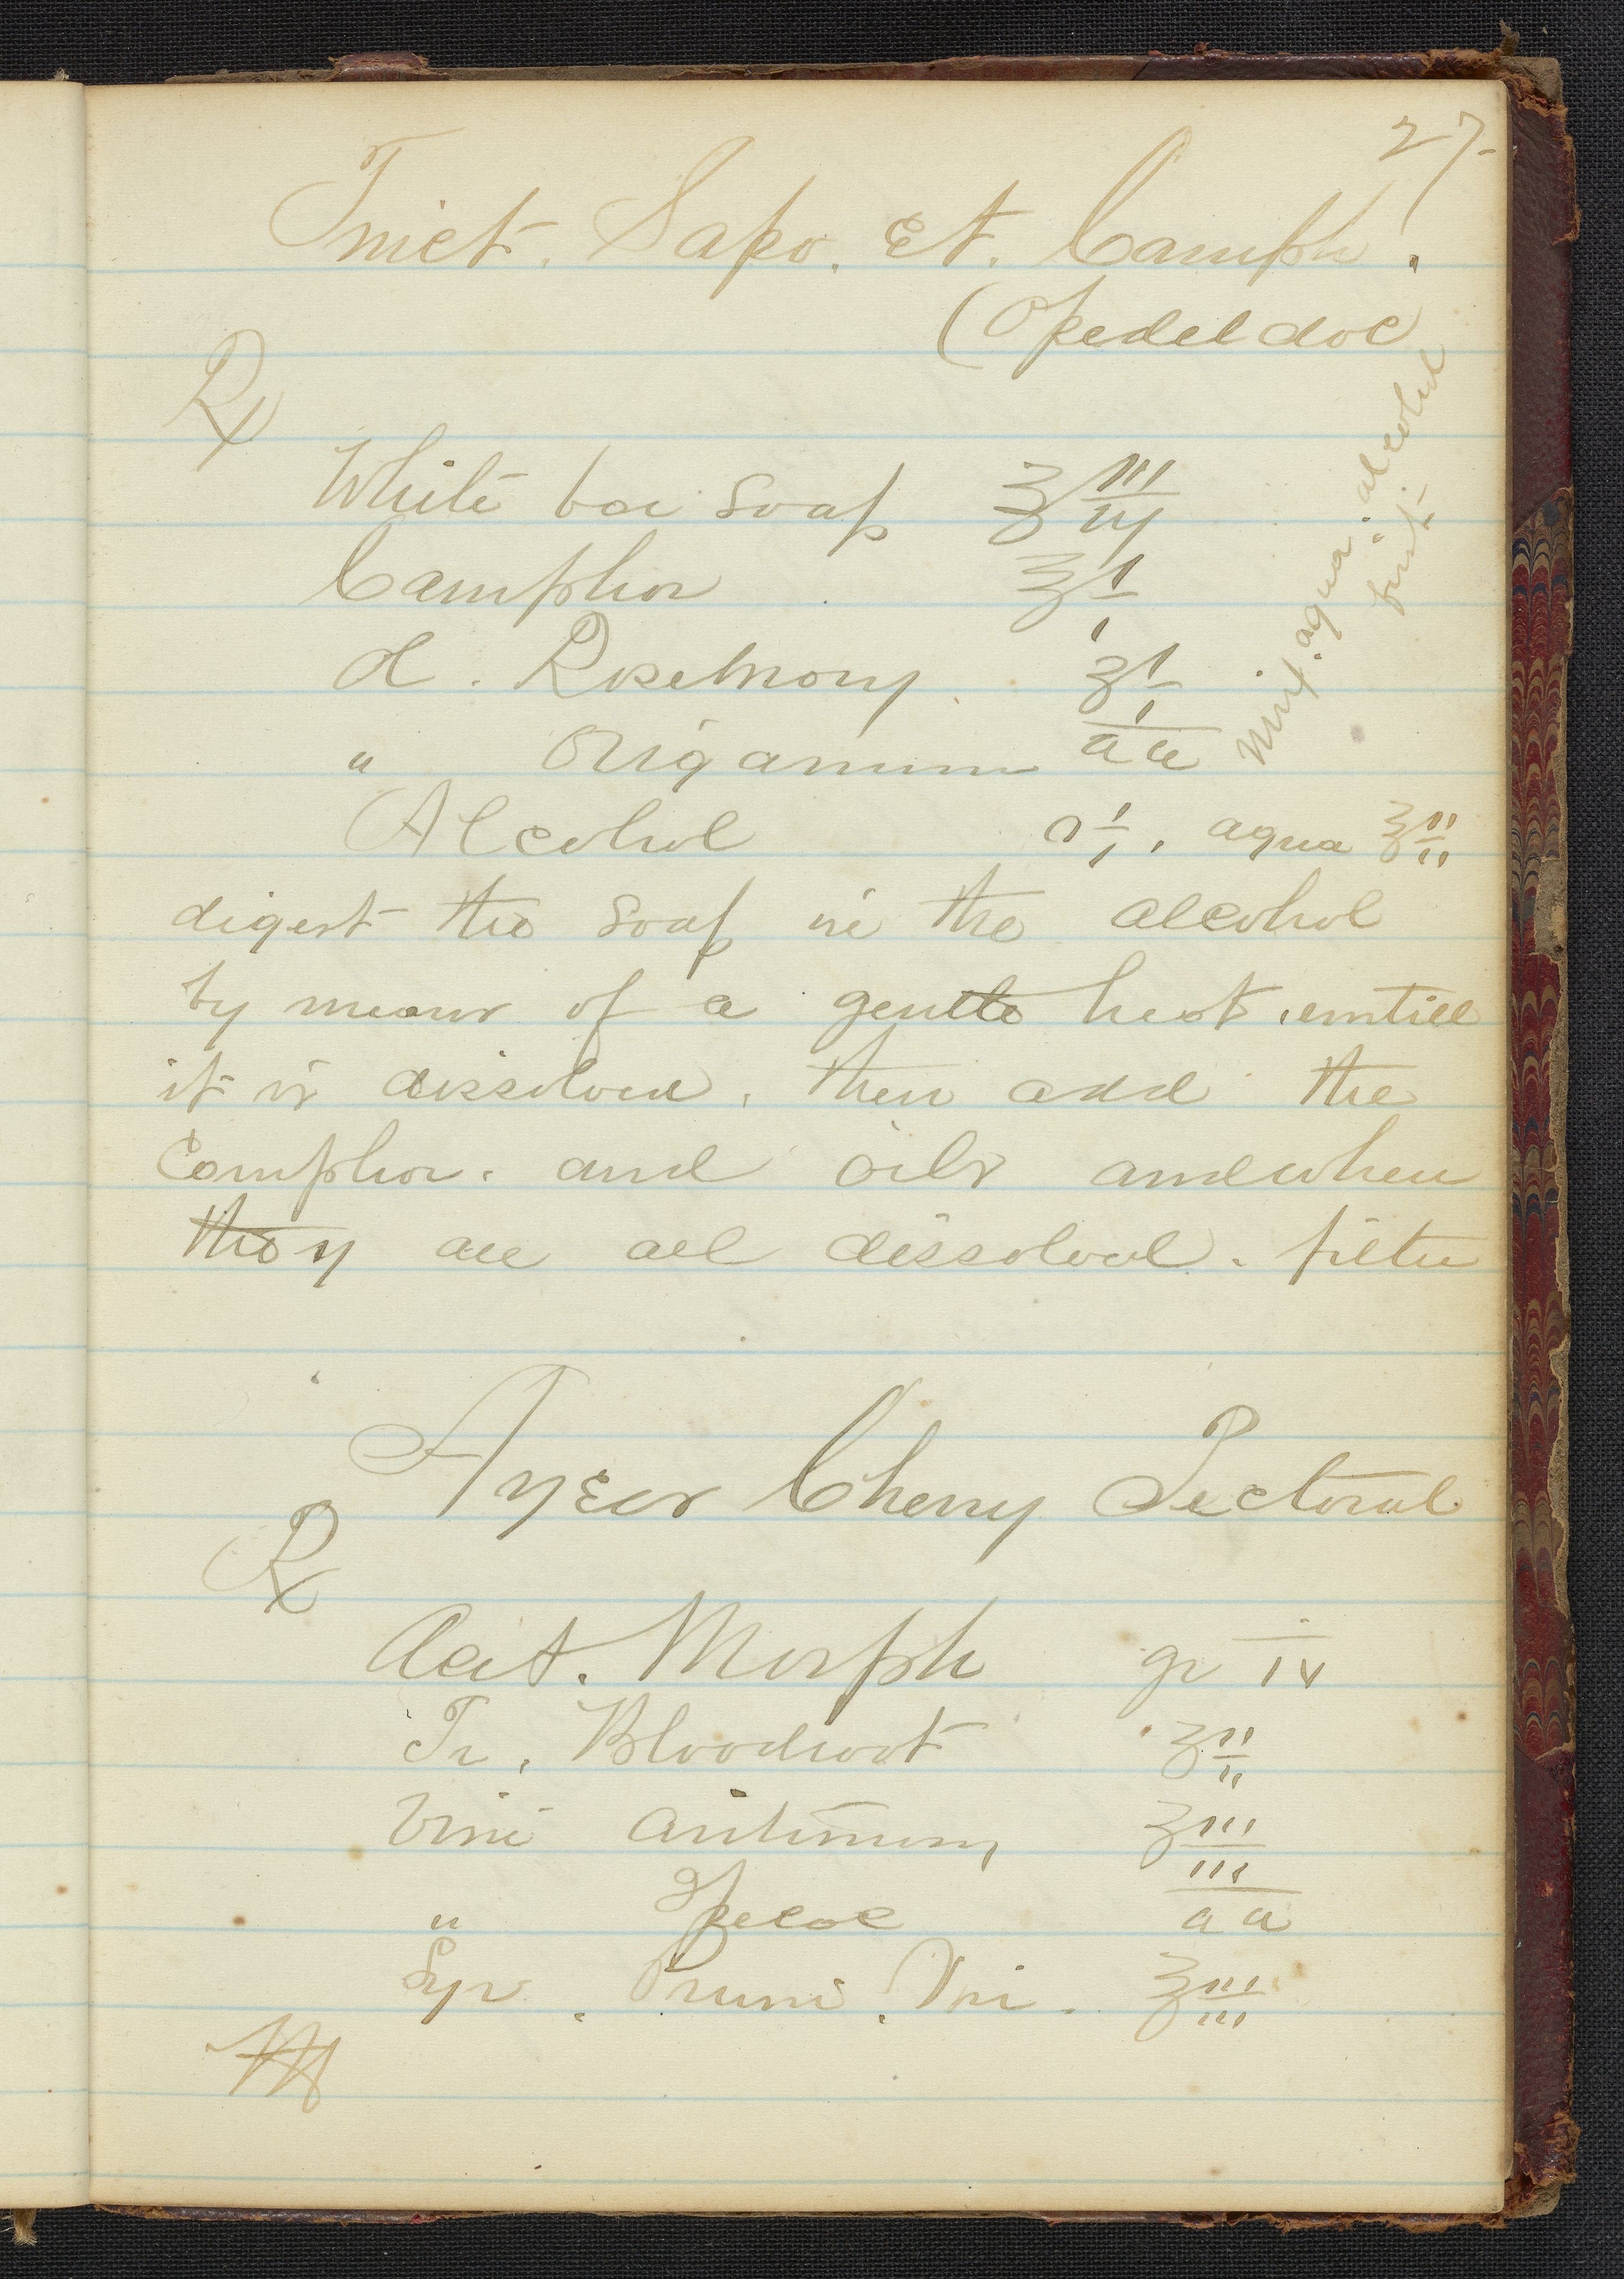 27-
Tinct. Sapo. Et. Camph.
(Opedeldoc
Rx
White bar Soap ℥ iij
Camphor ℥ i
Ol. Rosemary ʒ i
" Origanum aa
Alcohol O i, aqua ℥ ii
Mix. aqua. alcohol
first
digest the soap in the alcohol
by means of a gentle heat, untill
it is dissolved. then add the
Camphor. and oils and when
they are all dissolved. filter
Ayers Cherry Pectoral
Rx
Acet. Morph gr iv
Tr. Bloodroot ʒ ii
Vini Antimony ʒ iii
" Ipecac aa
Syr. Pruni. Vir. ℥ iii
M